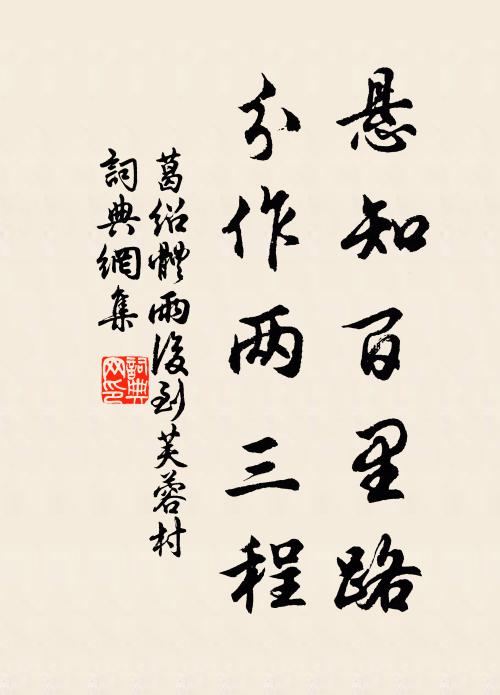 悬知百里路
分作两三程
葛绍體雨後到芙蓉村
詞典網集
詞典
网印